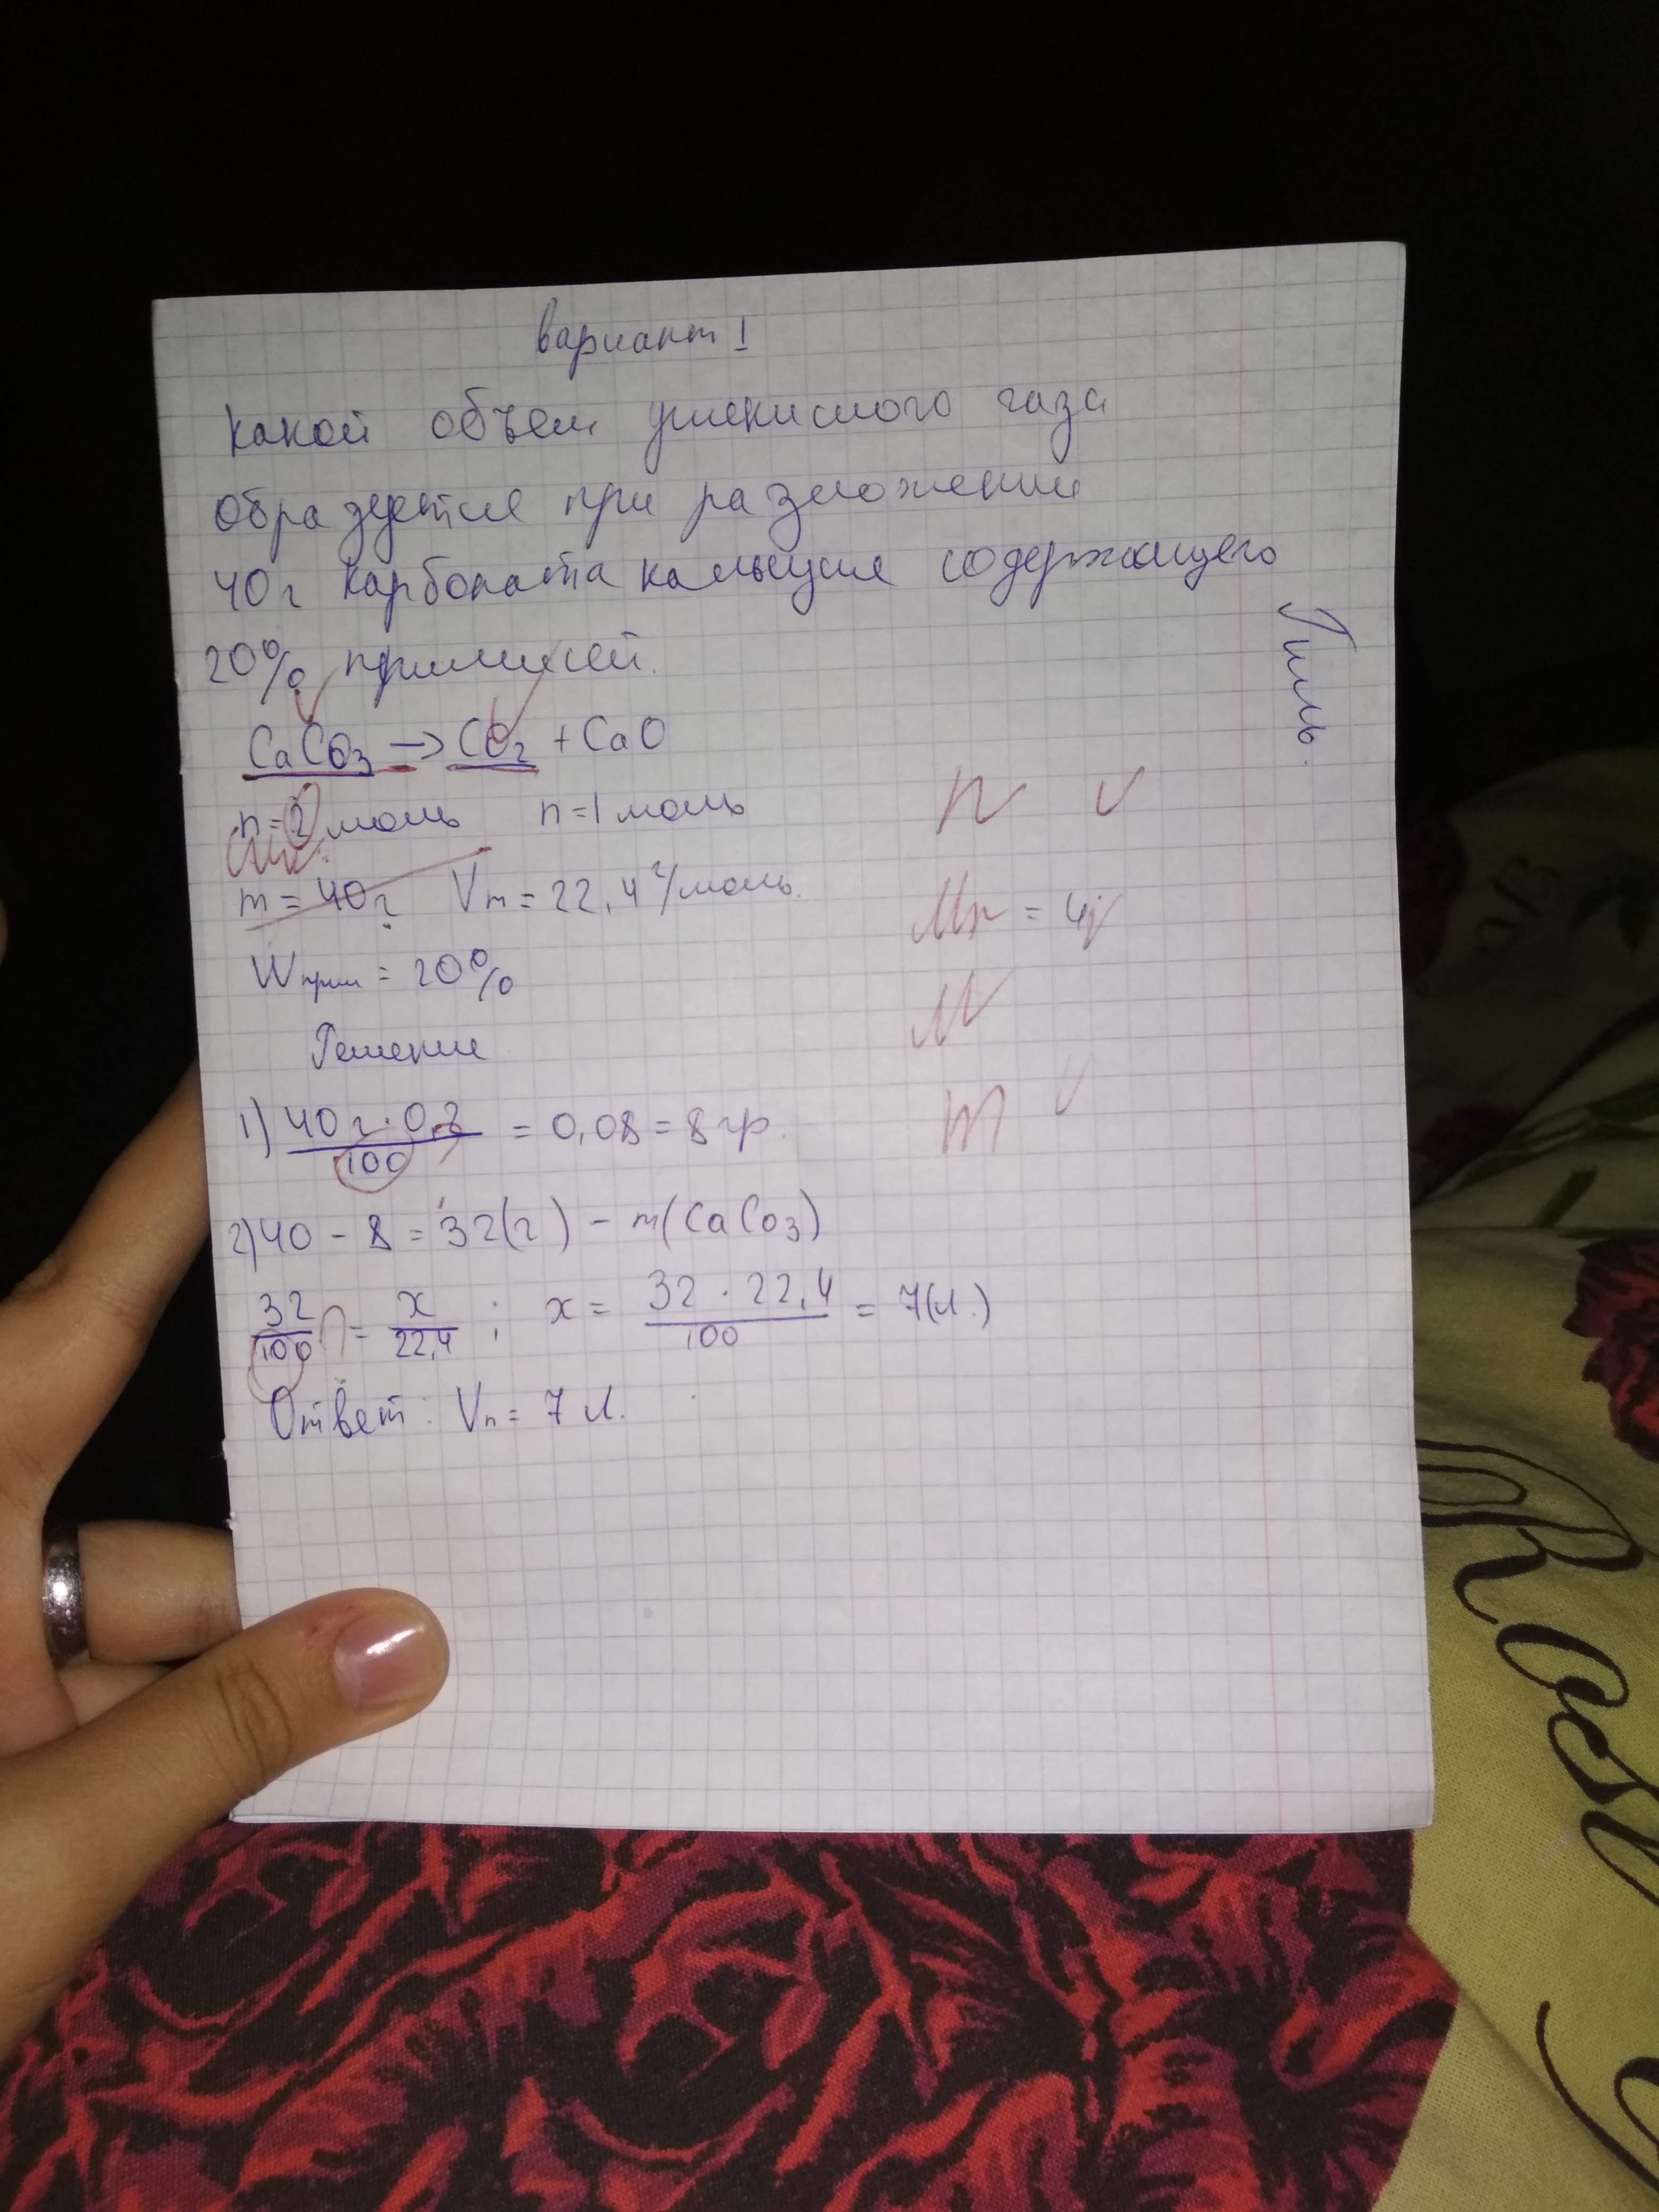 вариант I
Какой объем углекислого газа
образуется при разложении
40 г карбоната кальция содержащего
20% примесей.
CaCO3 → CO2 + CaO
n=2 моль n=1 моль
m = 40 г Vm = 22,4 г/моль.
Wприм = 20%
Решение
1) 40 г · 0,2 / 100 = 0,08 = 8 гр.
2) 40 - 8 = 32(г) - m(CaCo3)
32/100 = x/22,4 ; x = 32 · 22,4 / 100 = 7(л.)
Ответ: Vn = 7 л.
n v
Mr =
M
m v
Rose